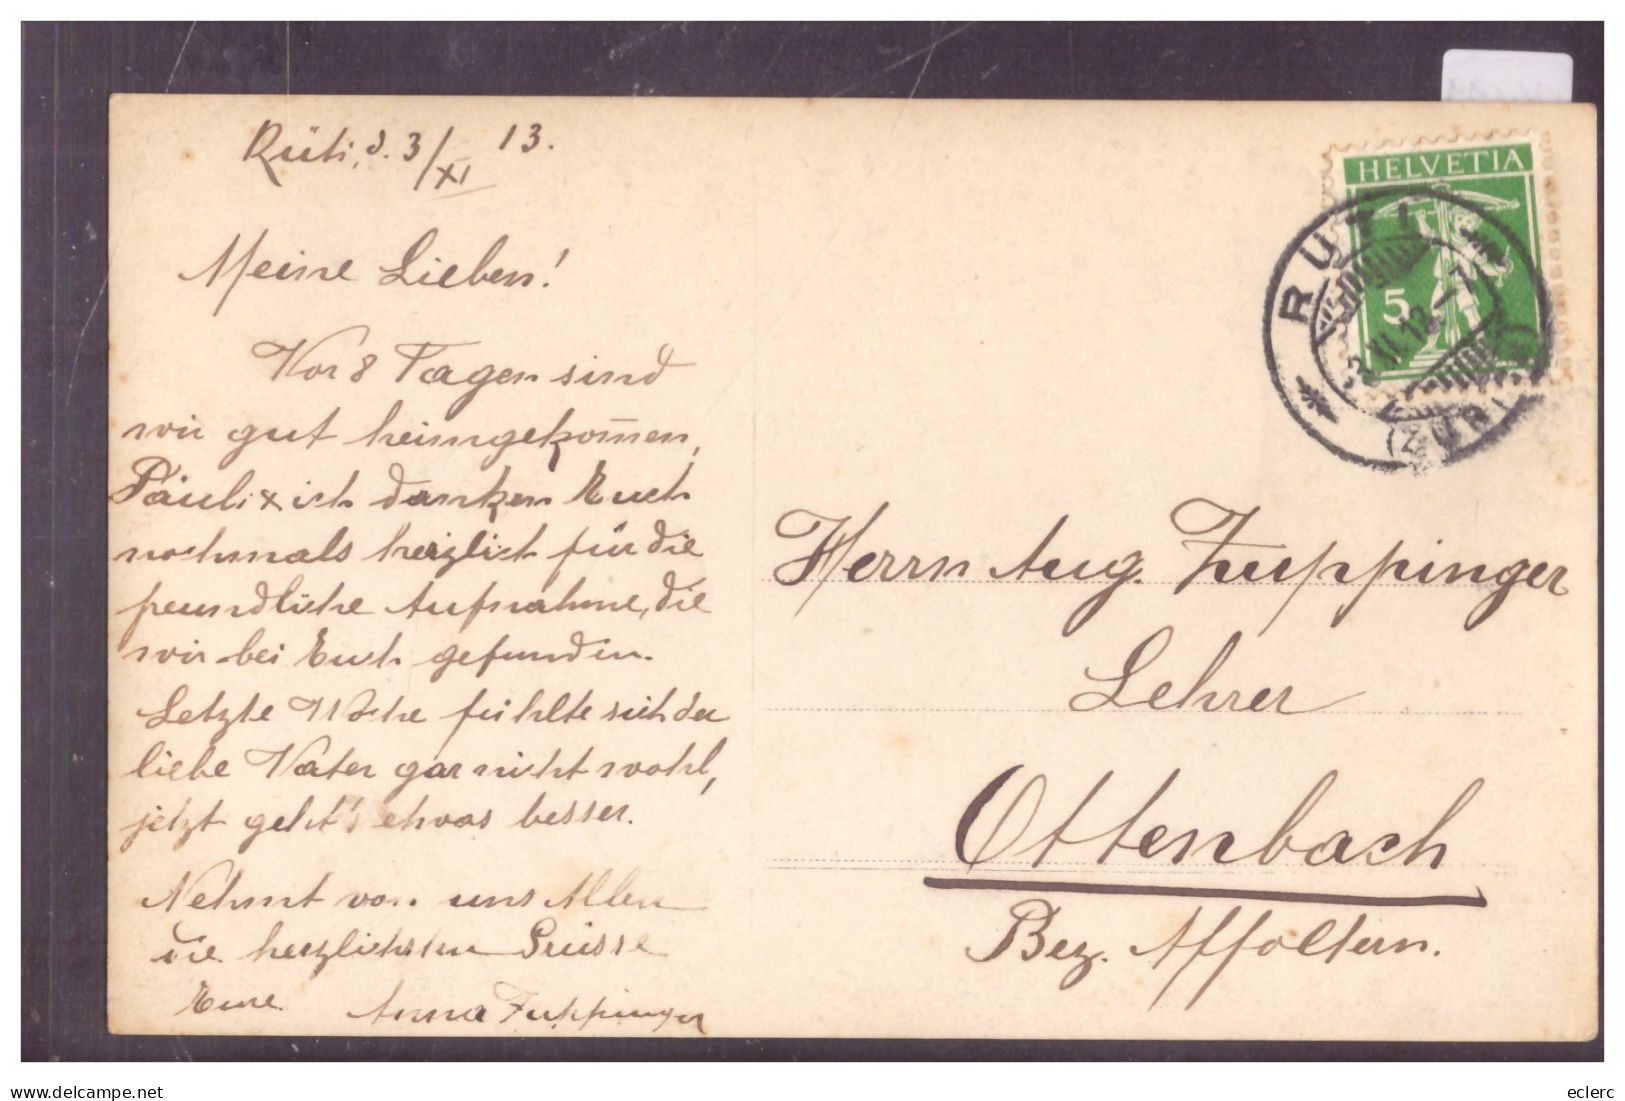 Rüti, d. 3/XI 13.
Meine Lieben!
Vor 8 Tagen sind
wir gut heimgekom̄en,
Päuli & ich danken Euch
nochmals herzlich für die
freundliche Aufnahme, die
wir bei Euch gefunden.
Letzte Woche fühlte sich der
liebe Vater gar nicht wohl,
jetzt geht's etwas besser.
Nehmt von uns Allen
die herzlichsten Grüsse
Eure Anna Zuppinger
HELVETIA
5
RÜTI
3.XI.13.-7
(ZÜRICH)
Herrn Aug. Zuppinger
Lehrer
Ottenbach
Bez. Affoltern.
delcampe.net
eclerc